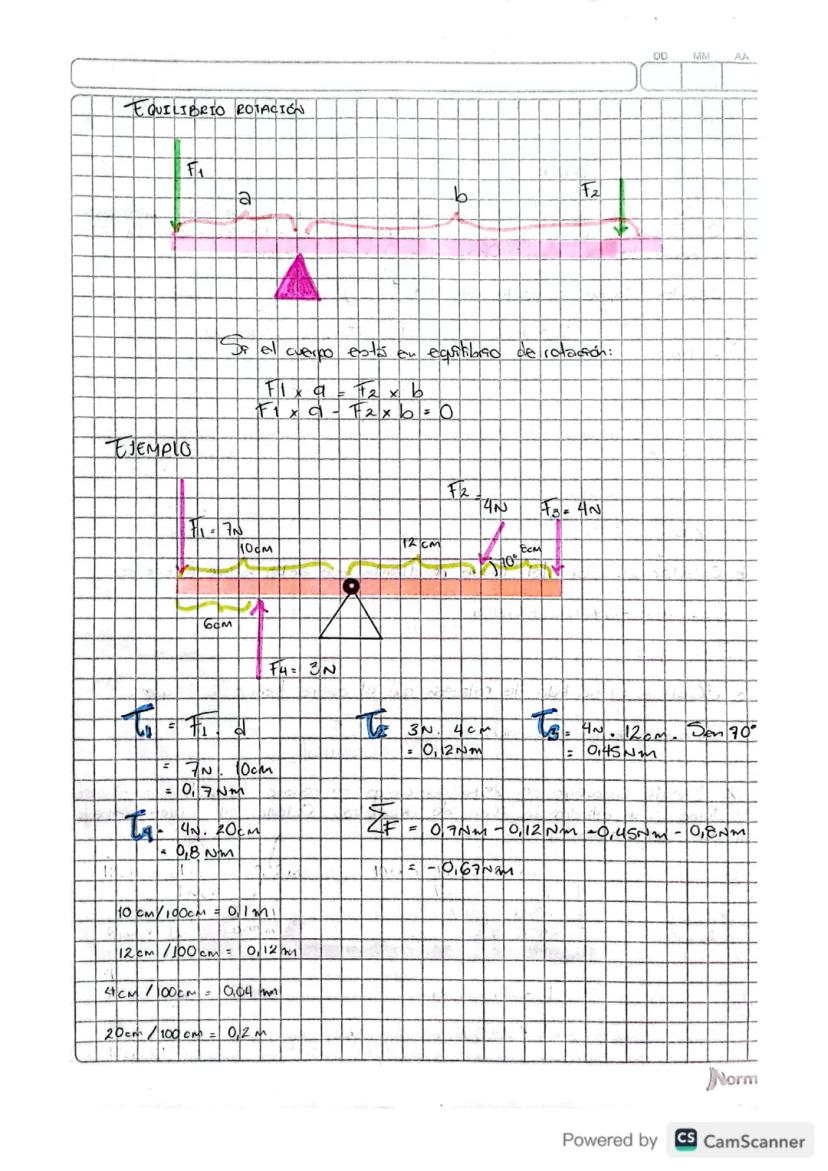 DD MM AA
EQUILIBRIO ROTACIÓN
F1
a
b
F2
Si el cuerpo está en equilibrio de rotación:
F1 x a = F2 x b
F1 x a - F2 x b = 0
EJEMPLO
F2 = 4N
F3 = 4N
F1 = 7N
10cm
12 cm
70°
8cm
6cm
F4 = 3N
τ1 = F1 . d
= 7N . 10cm
= 0,7Nm
τ2 3N . 4cm
= 0,12Nm
τ3 = 4N . 12cm . Sen 70°
= 0,45Nm
τ4 = 4N . 20cm
= 0,8 Nm
ΣF = 0,7Nm - 0,12Nm - 0,45Nm - 0,8Nm
= -0,67Nm
10 cm/100cm = 0,1m
12cm /100cm = 0,12m
4cm /100cm = 0,04 m
20cm /100 cm = 0,2 m
Norm
Powered by CS CamScanner